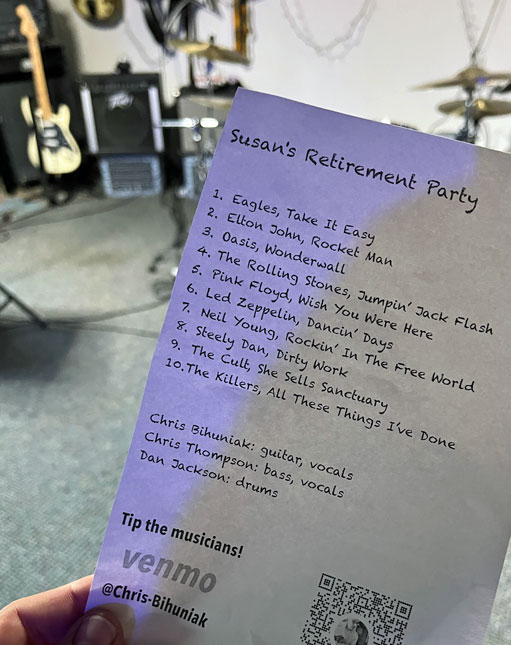 PEAVEY
Susan's Retirement Party
1. Eagles, Take It Easy
2. Elton John, Rocket Man
3. Oasis, Wonderwall
4. The Rolling Stones, Jumpin' Jack Flash
5. Pink Floyd, Wish You Were Here
6. Led Zeppelin, Dancin' Days
7. Neil Young, Rockin' In The Free World
8. Steely Dan, Dirty Work
9. The Cult, She Sells Sanctuary
10. The Killers, All These Things I've Done
Chris Bihuniak: guitar, vocals
Chris Thompson: bass, vocals
Dan Jackson: drums
Tip the musicians!
venmo
@Chris-Bihuniak